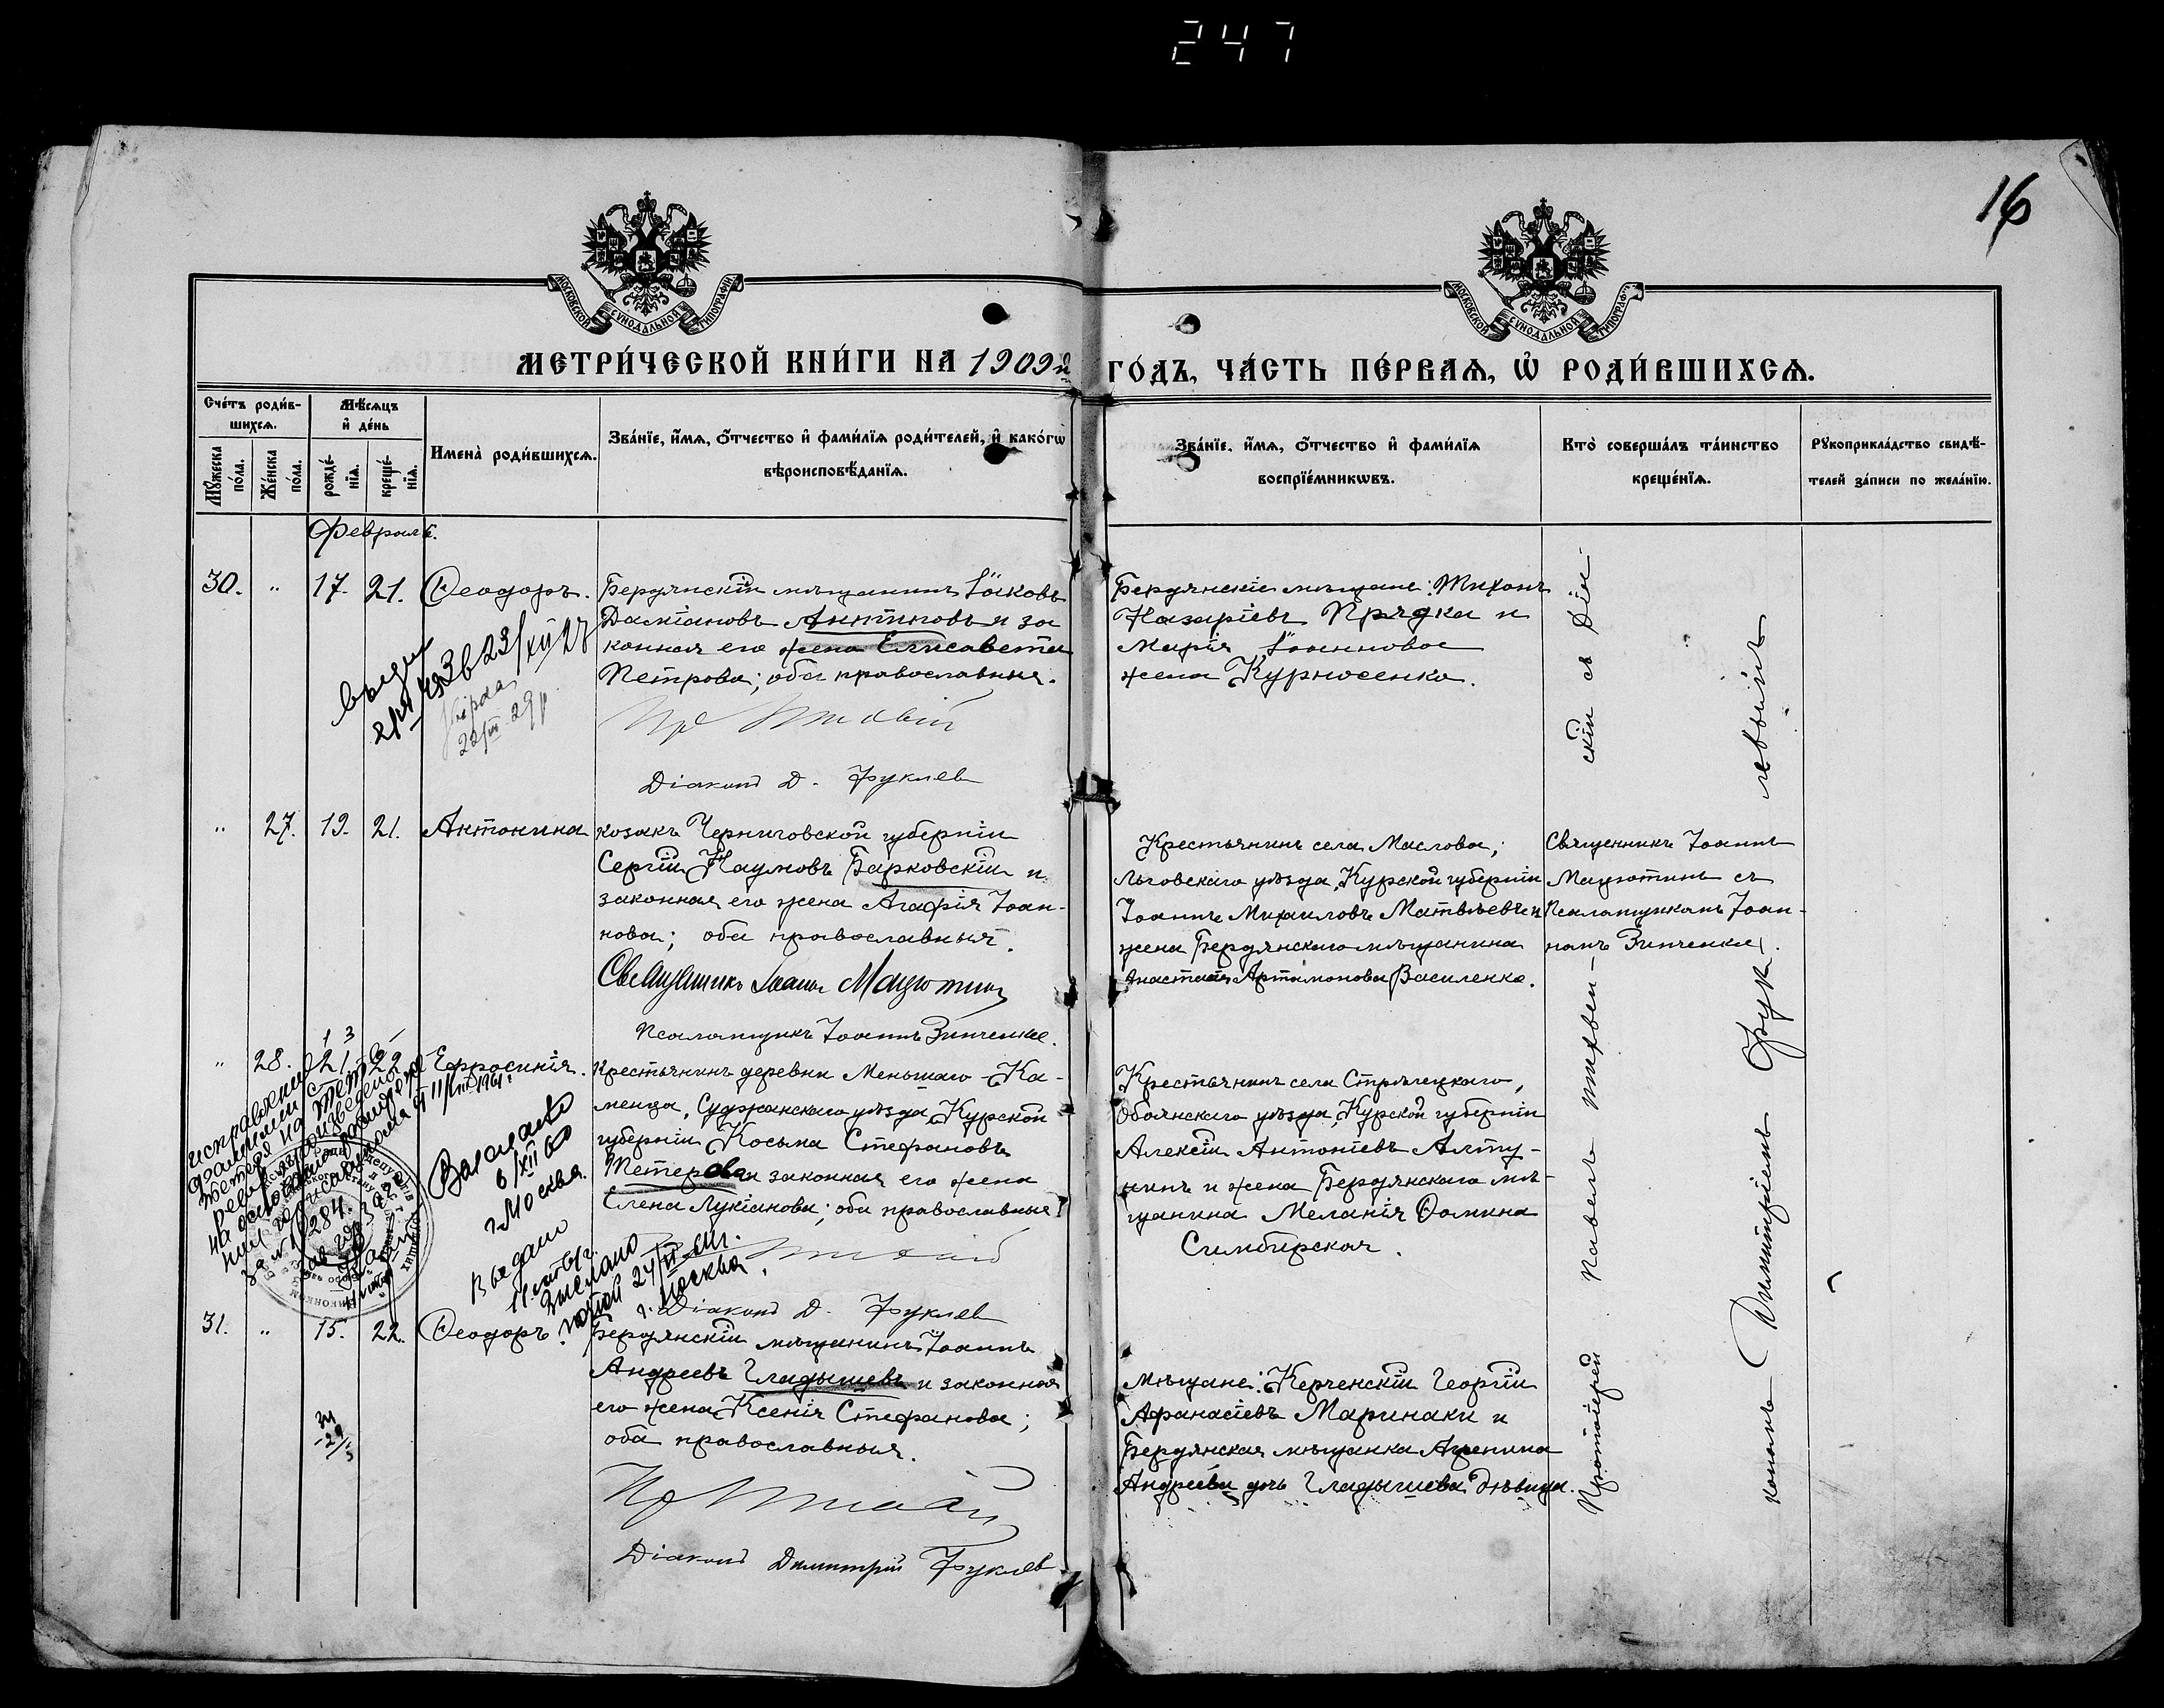 247
16
МОСКОВСКОЙ СУНОДАЛЬНОЙ ТИПОГРАФІИ
МОСКОВСКОЙ СУНОДАЛЬНОЙ ТИПОГРАФІИ
МЕТРИ́ЧЕСКОЙ КНИ́ГИ НА 1909й ГО́ДЪ, ЧА́СТЬ ПЕ́РВАѦ, Ѡ҆ РОДИ́ВШИХСѦ.
Сче́тъ роди́в-
шихсѧ.
Мꙋ́жеска по́ла.
Же́нска по́ла.
Мѣ́сѧцъ
и҆ де́нь
рожде́-
нїѧ.
креще́-
нїѧ.
Имена̀ роди́вшихсѧ.
Зва́нїе, и҆́мѧ, ѻ҆́тчество и҆ фами́лїѧ роди́телей, и҆ како́гѡ
вѣроисповѣ́данїѧ.
Зва́нїе, и҆́мѧ, ѻ҆́тчество и҆ фами́лїѧ
воспрїе́мникѡвъ.
Кто̀ соверша́лъ та́инство
креще́нїѧ.
Рꙋкоприкла́дство свидѣ́-
телей за́писи по жела́нїю.
Февраль.
30. " 17. 21. Ѳеодоръ.
Бердянскій мѣщанинъ Іаковъ
Даміановъ Антиповъ и за
конная его жена Елисавета
Петрова; оба православные.
Діаконъ Д. Фуклев
Бердянскіе мѣщане: Тихонъ
Назаріевъ Прядка и
Марія Іоаннова
жена Курносенко.
23/XII 27
" 27. 19. 21. Антонина
козакъ Черниговской губерніи
Сергій Наумовъ Барковскій и
законная его жена Агафія Іоан-
нова; оба православныя.
Священникъ Іоаннъ Мацютинъ
Псаломщикъ Іоаннъ Зинченко.
Крестьянинъ села Маслова,
Льговскаго уѣзда, Курской губерніи
Іоаннъ Михаиловъ Матвѣевъ и
жена Бердянскаго мѣщанина
Анастасія Артамонова Василенко.
Священникъ Іоаннъ
Мацютинъ съ
Псаломщикомъ Іоан-
номъ Зинченко.
1 3
" 28. 21. 22. Евфросинія.
Крестьянинъ деревни Меньшаго Ка-
менца, Суджанскаго уѣзда, Курской
губерніи Косьма Стефановъ
Тетерев и законная его жена
Елена Лукіанова; оба православные
Діаконъ Д. Фуклев
Крестьянинъ села Стрѣлецкаго,
Обоянскаго уѣзда, Курской губерніи
Алексій Антоніевъ Алту-
нинъ и жена Бердянскаго мѣ-
щанина Меланія Ѳомина
Симбирская.
исправление
фамилии с Тет
на основании
за № 284.
6/XII 60
г. Москва.
Выдано
Выслано
почтой 24/II 61г.
г. Москва.
31. " 15. 22. Ѳеодоръ
Бердянскій мѣщанинъ Іоаннъ
Андреевъ Гладышевъ и законная
его жена Ксенія Стефанова;
оба православныя.
Діаконъ Димитрій Фуклев
Мѣщане: Керченскій Георгій
Афанасіевъ Маринаки и
Бердянская мѣщанка Агрепина
Андреева дочь Гладышева дѣвица.
Протоіерей Павелъ Титвен-
скій съ Діа-
кономъ Димитріемъ Фук-
левымъ